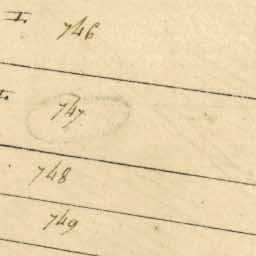 I 746
I. 747.
748
749